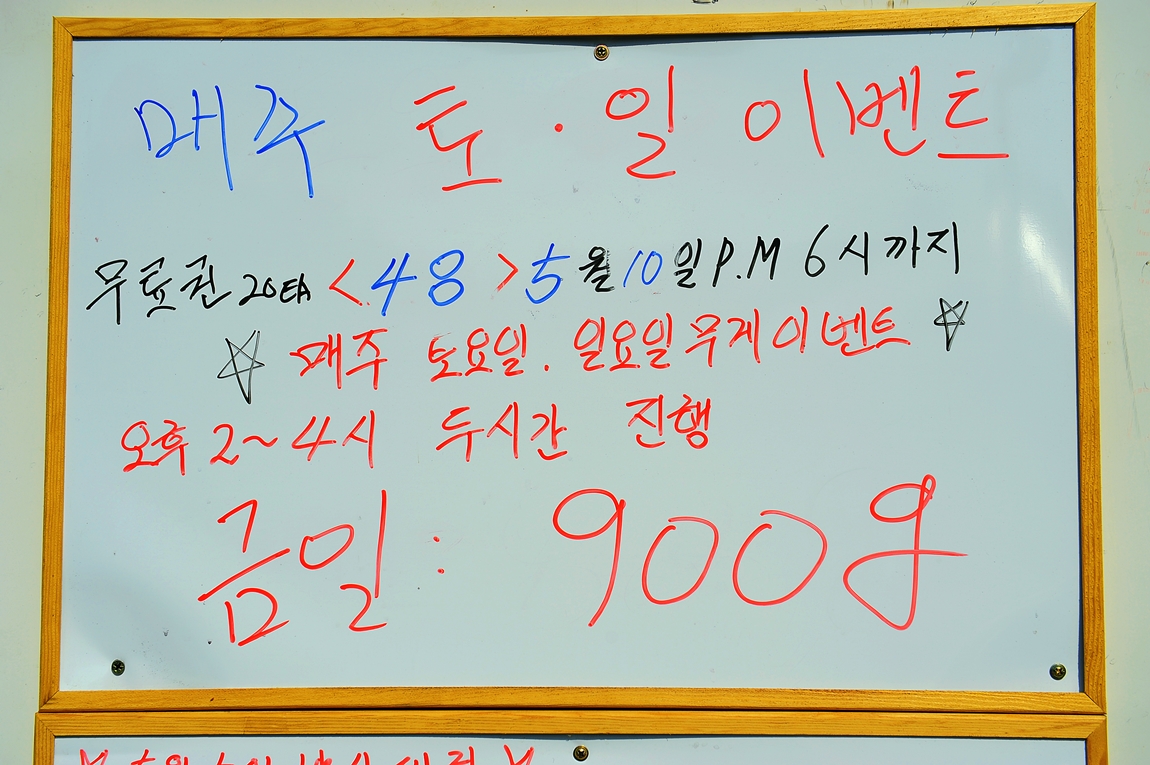 매주 토·일 이벤트
무료권 20EA <48> 5월 10일 P.M 6시까지
☆ 매주 토요일. 일요일 무게이벤트 ☆
오후 2~4시 두시간 진행
금일: 900g